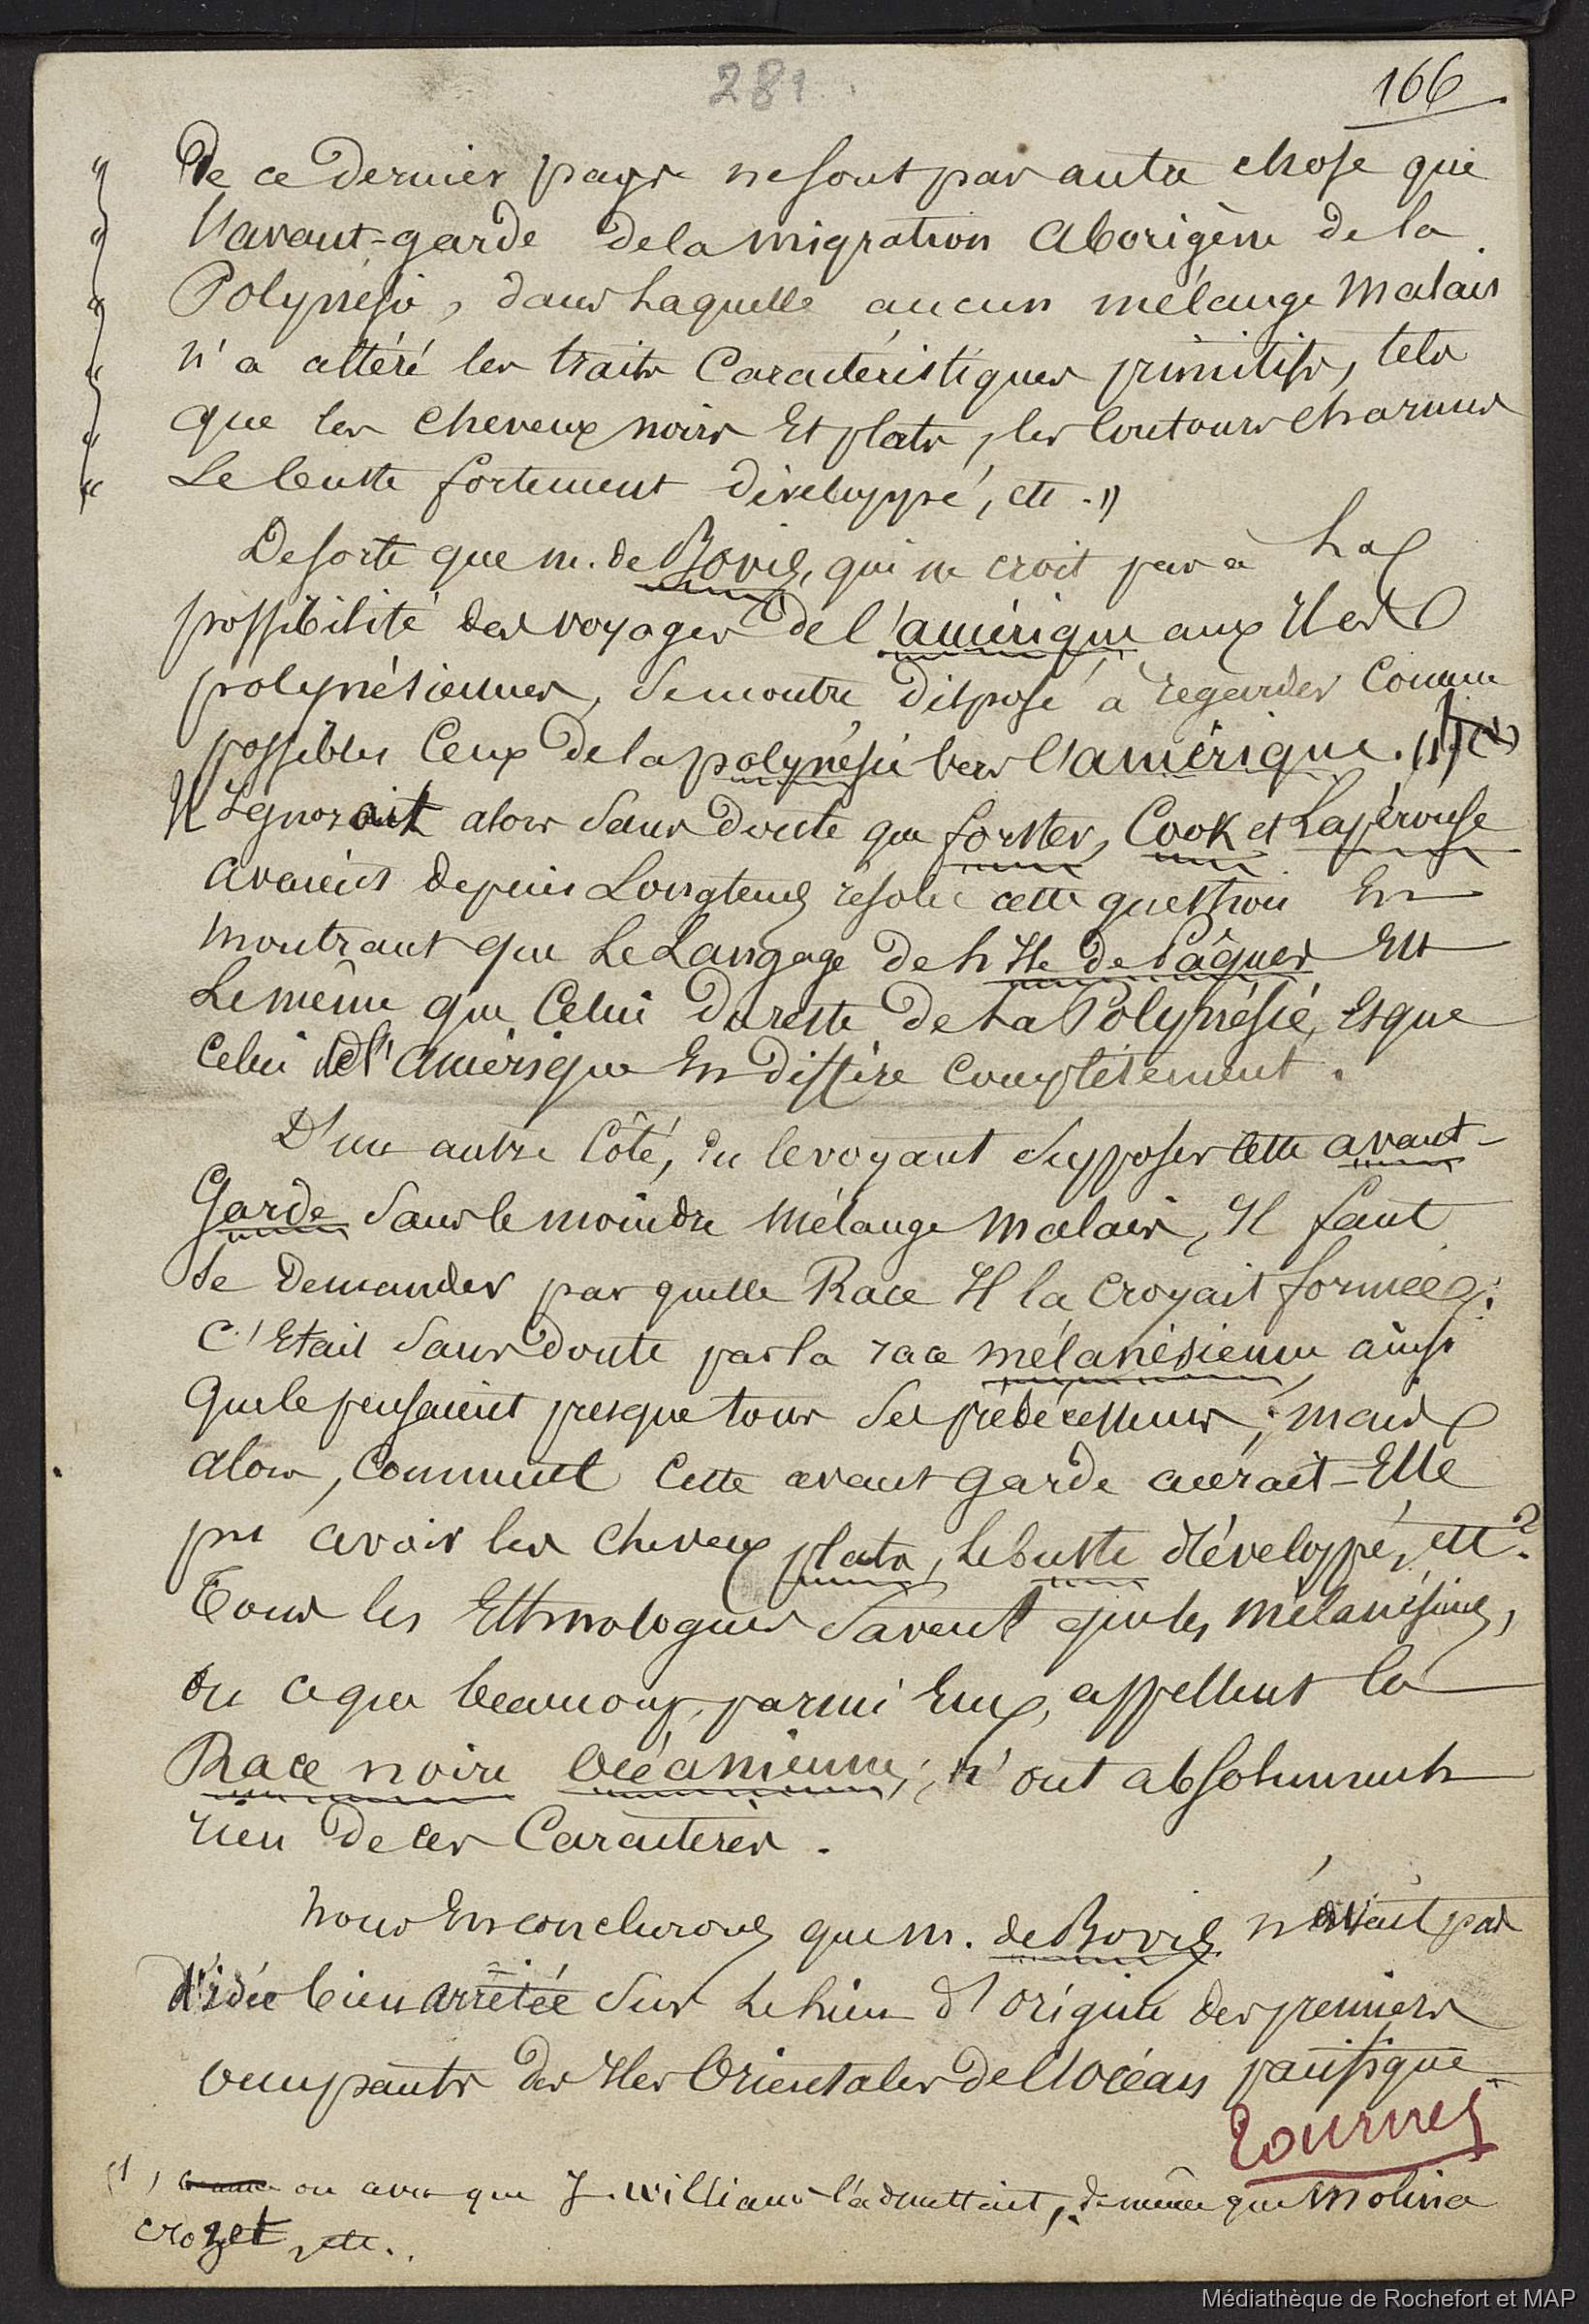 281.
166
" De ce dernier pays ne sont pas autre chose que
" l'avant-garde de la migration aborigène de la
" Polynésie, dans laquelle aucun mélange malais
" n'a altéré les traits caractéristiques primitifs, tels
" que les cheveux noirs et plats, les contours charnus
" Le buste fortement développé, etc. "
De sorte que M. de Bovis, qui ne croit pas à la
possibilité des voyages de l'amérique aux Iles
polynésiennes, se montre disposé à regarder comme
possibles ceux de la polynésie vers l'amérique. (1)
Il Ignorait alors sans doute que forster, Cook et Lapérouse
avaient depuis Longtems résolu cette question En
montrant que Le Langage de l'Ile de Pâques Est
Le même que Celui du reste de La Polynésie, Et que
Celui de l'amérique En diffère complètement.
D'un autre Côté, en le voyant supposer cette avant-
Garde sans le moindre mélange malais, Il faut
se demander par quelle Race Il la croyait formée;
C'Etait sans doute par la race mélanésienne ainsi
que le pensaient presque tous ses prédécesseurs; mais
alors, comment cette avant garde aurait-Elle
pu avoir les cheveux plats, le buste développé, etc?
Tous les Ethnologues savent que les mélanésiens,
ou ce que beaucoup, parmi Eux, appellent la
Race noire Océanienne, n'ont absolument
rien de ces Caractères.
Nous En conclurons que M. de Bovis n'avait pas
d'idée bien arrêtée sur Le lieu d'origine des premiers
occupants des Iles Orientales de l'océan pacifique
Tournez
(1) on a vu que J. Williams l'admettait, de même que Molina
Crozet, etc..
Médiathèque de Rochefort et MAP